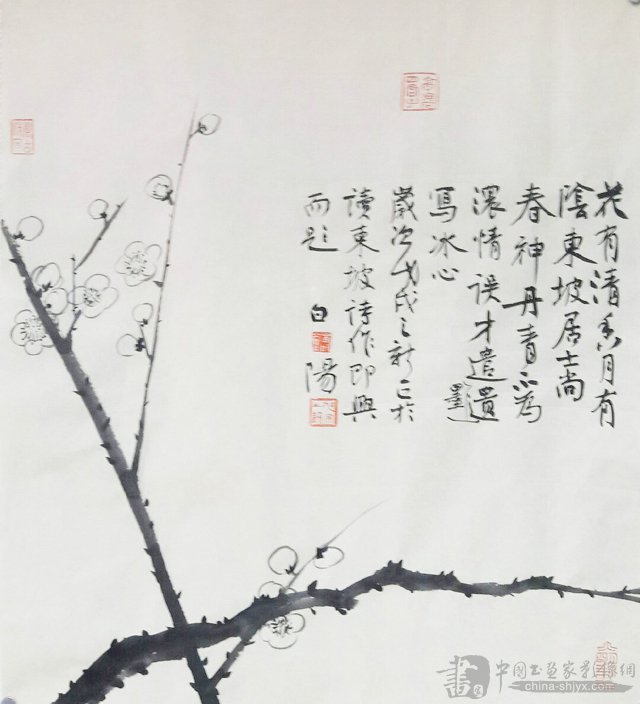 花有清香月有
陰東坡居士尚
春神丹青不為
濃情误才遣遺墨
寫冰心
歲次戊戌之新正於
讀東坡詩作即興
而題 白陽
中國书画家影像網
china-shjyx.com